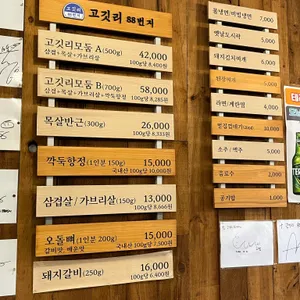 고깃리 88번지
고깃리모둠 A(500g) 42,000
삼겹+목살+가브리살 100g당8,400원
고깃리모둠 B(700g) 58,000
삼겹+목살+가브리살+깍둑항정 100g당8,285원
목살반근(300g) 26,000
100g당8,333원
깍둑항정(1인분 150g) 15,000
국내산 100g당 10,000원
삼겹살 / 가브리살(150g) 13,000
100g당8,666원
오돌뼈(1인분 200g) 15,000
국내산 100g당7,500원
돼지갈비(250g) 16,000
100g당6,400원
물냉면/비빔냉면 7,000
옛날도시락 5,000
돼지김치찌개
라면/계란찜 4,000
소주/맥주 5,000
음료수 2,000
공기밥 1,000